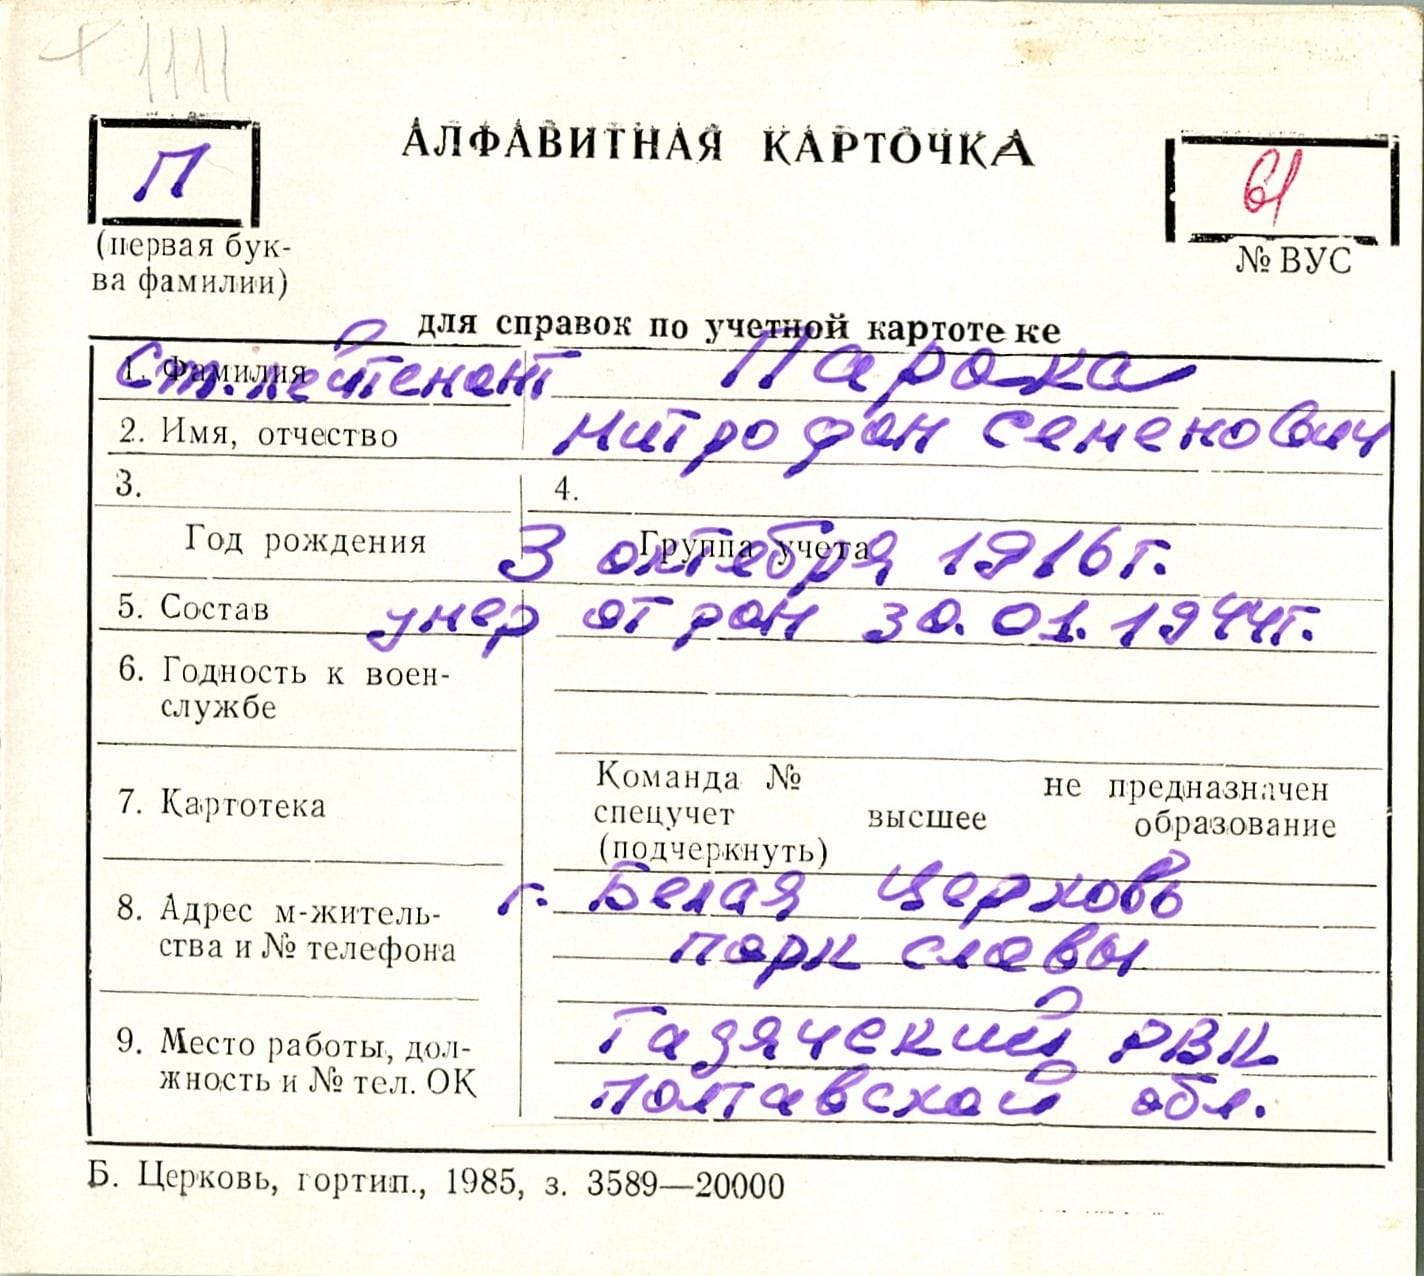 1111
АЛФАВИТНАЯ КАРТОЧКА
П
61
(первая бук-
ва фамилии)
№ ВУС
для справок по учетной картотеке
1. Фамилия
Ст. лейтенант Парока
2. Имя, отчество Митрофан Семенович
3. 4.
Год рождения Группа учета
3 октября 1916 г.
5. Состав умер от ран 30.01.1944г.
6. Годность к воен-
службе
7. Картотека
Команда № не предназначен
спецучет высшее образование
(подчеркнуть)
8. Адрес м-житель-
ства и № телефона
г. Белая Церковь
парк славы
9. Место работы, дол-
жность и № тел. ОК
Гадячский РВК
Полтавской обл.
Б. Церковь, гортип., 1985, з. 3589—20000